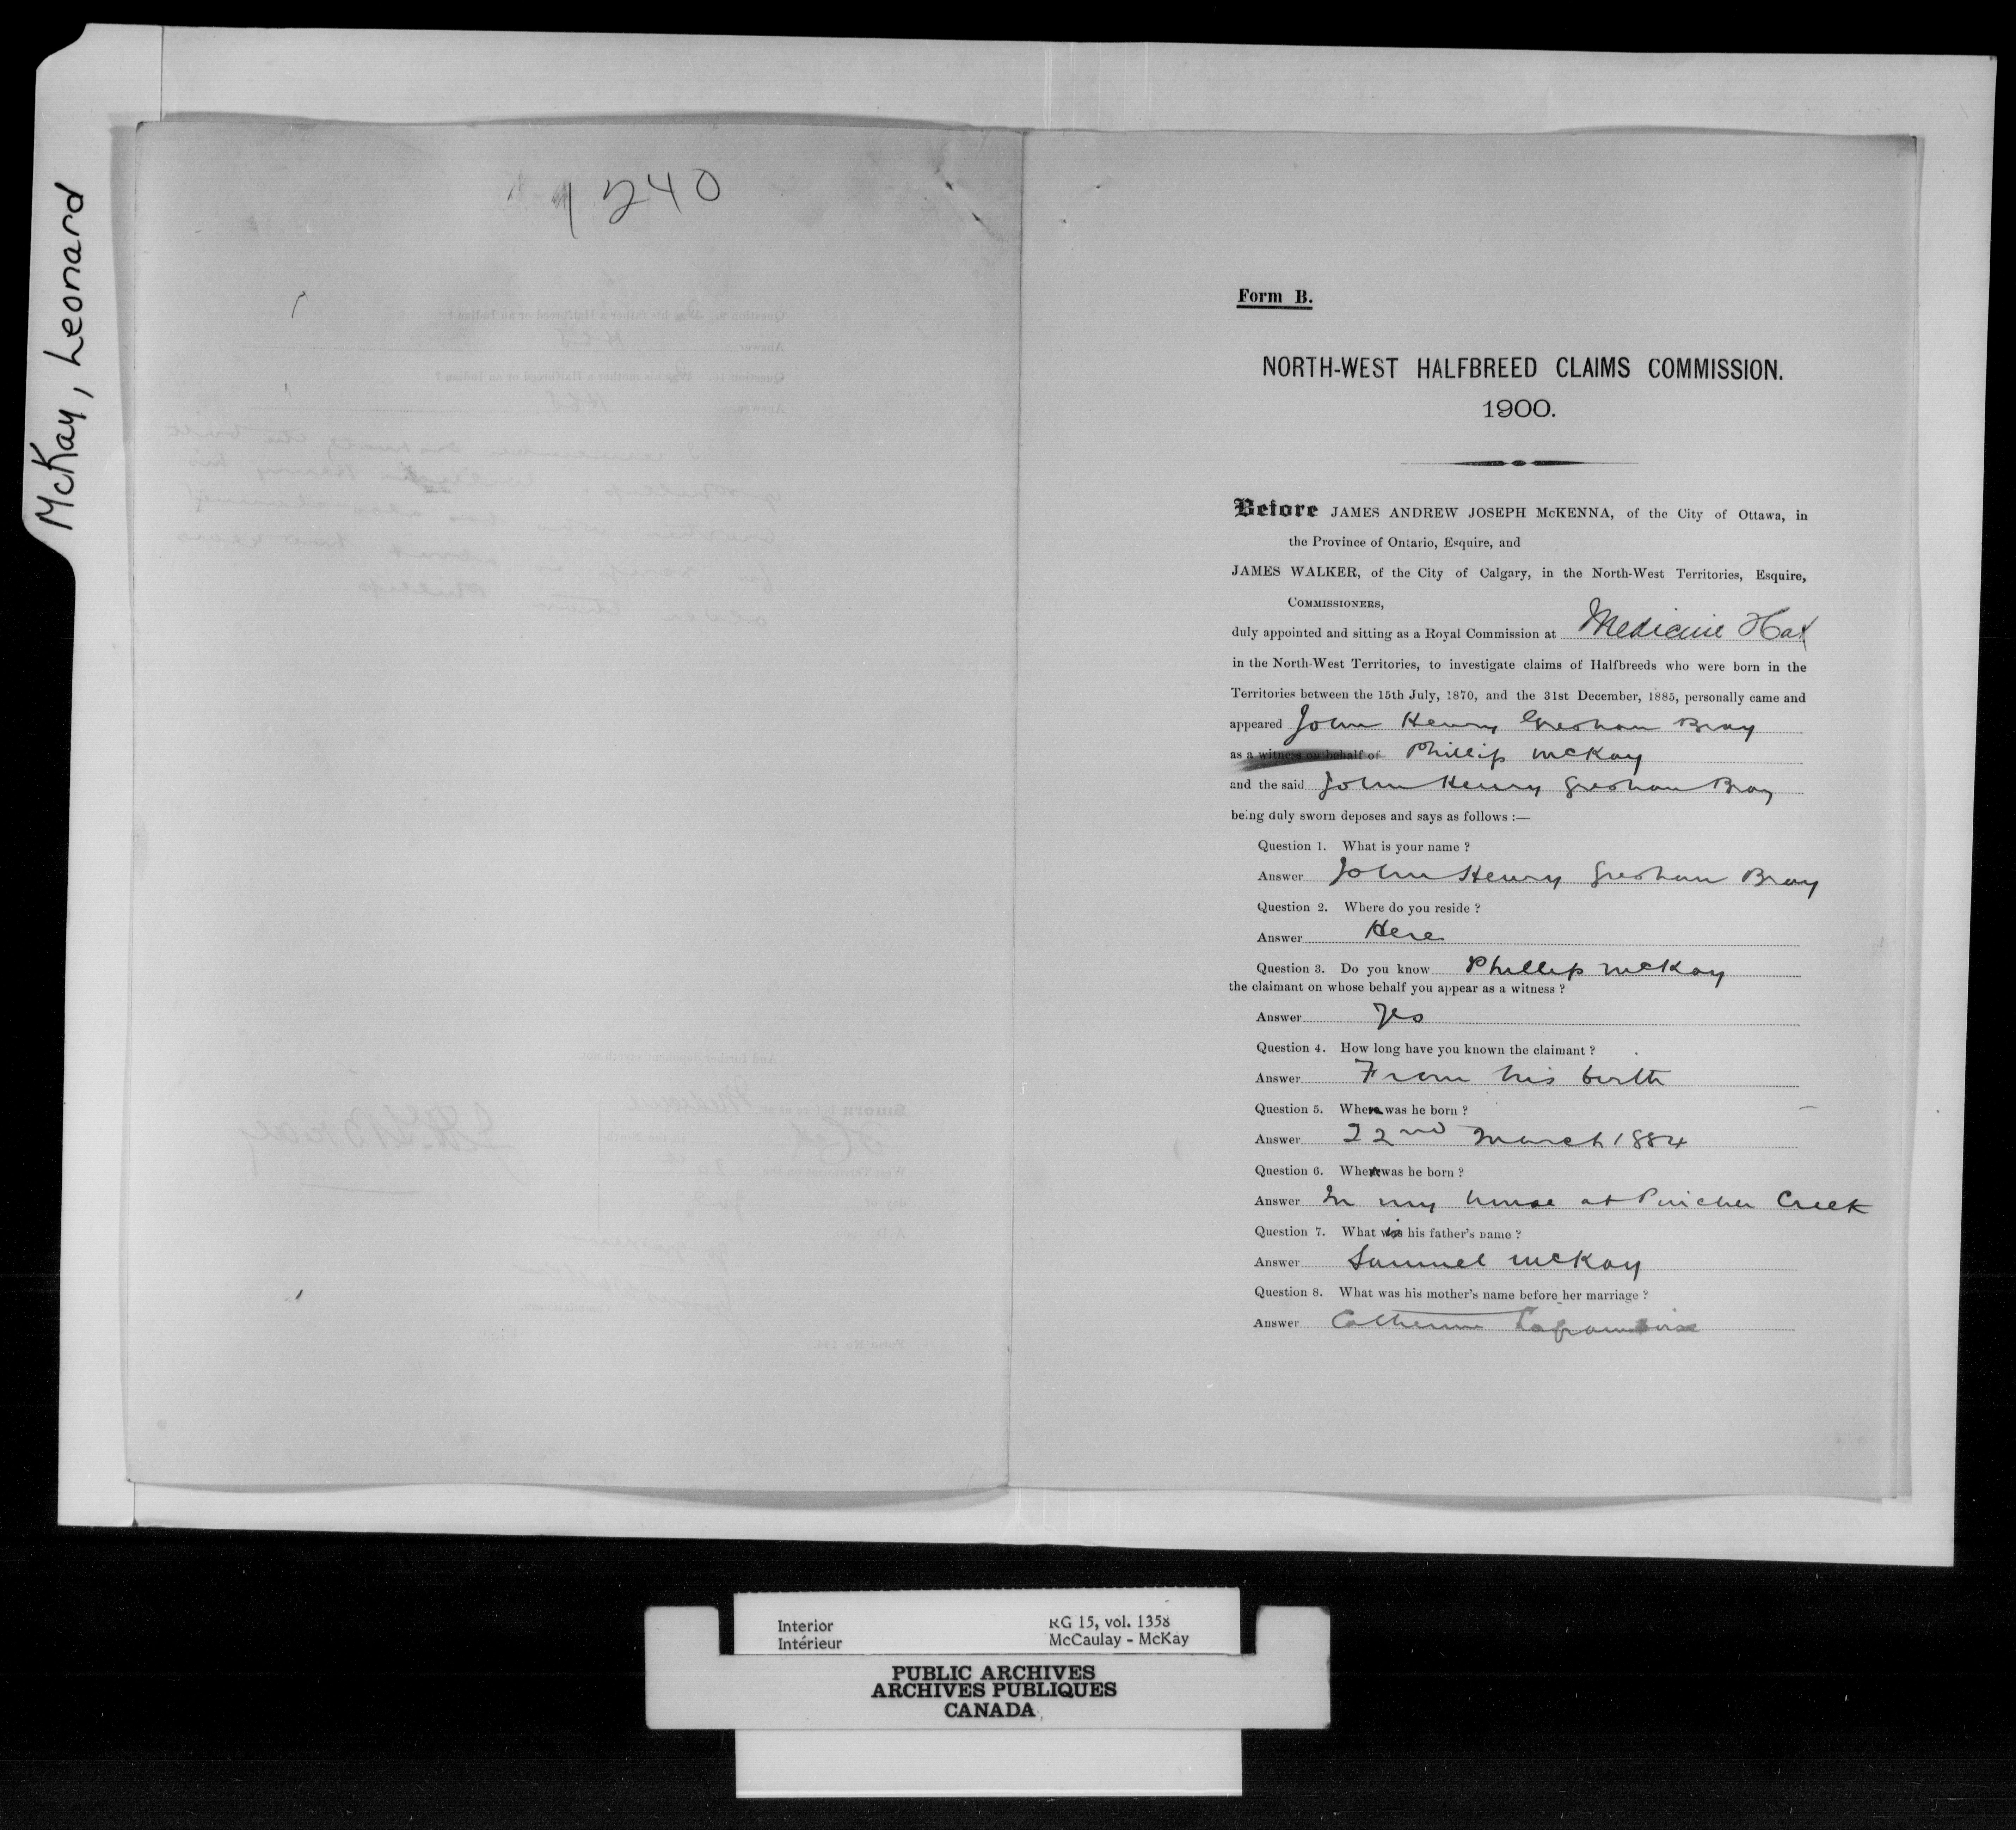 McKay, Leonard
1240
Form B.
NORTH-WEST HALFBREED CLAIMS COMMISSION.
1900.
Before JAMES ANDREW JOSEPH McKENNA, of the City of Ottawa, in
the Province of Ontario, Esquire, and
JAMES WALKER, of the City of Calgary, in the North-West Territories, Esquire,
COMMISSIONERS,
duly appointed and sitting as a Royal Commission at Medicine Hat
in the North-West Territories, to investigate claims of Halfbreeds who were born in the
Territories between the 15th July, 1870, and the 31st December, 1885, personally came and
appeared John Henry Gresham Bray
as a witness on behalf of Phillip McKay
and the said John Henry Gresham Bray
being duly sworn deposes and says as follows :—
Question 1. What is your name ?
Answer John Henry Gresham Bray
Question 2. Where do you reside ?
Answer Here
Question 3. Do you know Phillip McKay
the claimant on whose behalf you appear as a witness ?
Answer Yes
Question 4. How long have you known the claimant ?
Answer From his birth
Question 5. When was he born ?
Answer 22nd March 1884
Question 6. Where was he born ?
Answer In my house at Pincher Creek
Question 7. What is his father's name ?
Answer Samuel McKay
Question 8. What was his mother's name before her marriage ?
Answer Catherine Laframboise
Interior
Intérieur
RG 15, vol. 1358
McCaulay - McKay
PUBLIC ARCHIVES
ARCHIVES PUBLIQUES
CANADA